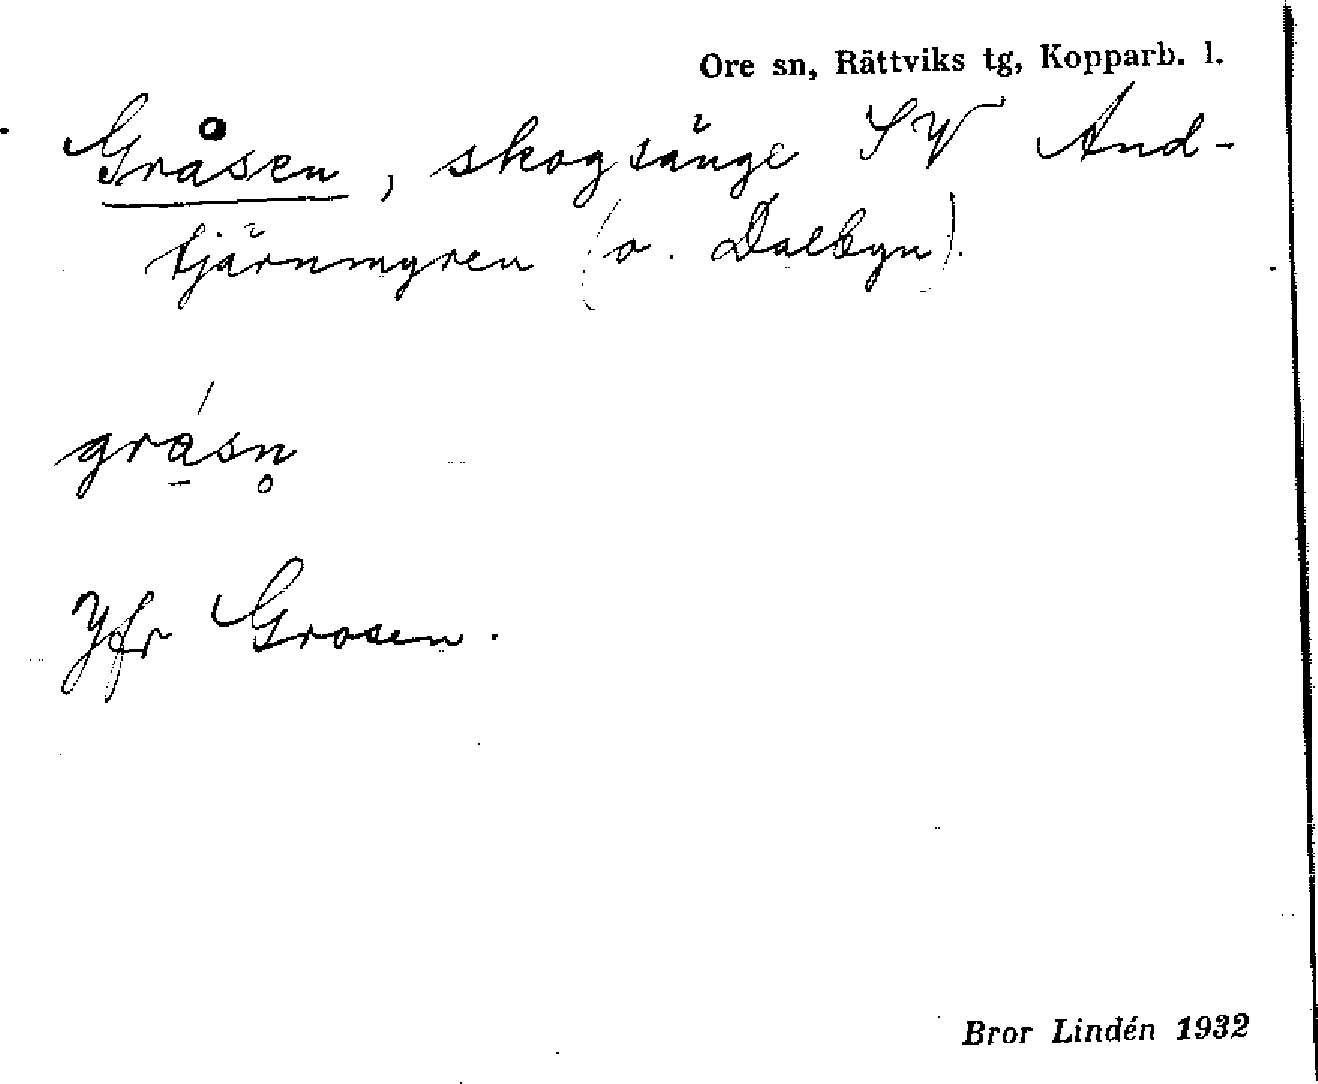 Ore sn, Rättviks tg, Kopparb. l.
Gråsen, skogsänge SV And-
tjärnmyren (o. Dalbyn).
grásn̥
Jfr Grosen.
Bror Lindén 1932